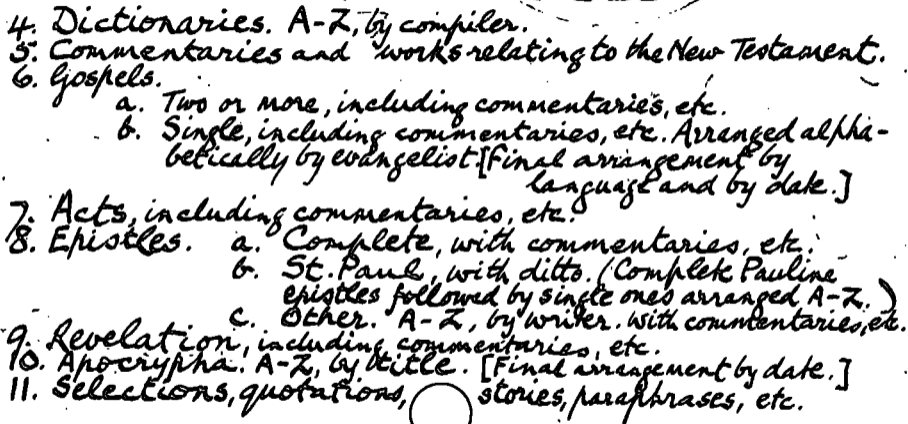 4. Dictionaries. A-Z, by compiler.
5. Commentaries and works relating to the New Testament.
6. Gospels.
a. Two or more, including commentaries, etc.
b. Single, including commentaries, etc. Arranged alpha-
betically by evangelist. [Final arrangement by
language and by date.]
7. Acts, including commentaries, etc.
8. Epistles. a. Complete, with commentaries, etc.
b. St. Paul, with ditto. (Complete Pauline
epistles followed by single ones arranged A-Z.)
c. Other. A-Z, by writer. With commentaries, etc.
9. Revelation, including commentaries, etc.
10. Apocrypha. A-Z, by title. [Final arrangement by date.]
11. Selections, quotations, stories, paraphrases, etc.